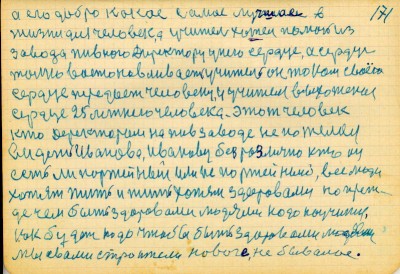 а его добро какое самое лучшее в 171
жизни для человека, учител хочем помоч из
завода пивного Директору у него сердце, а сердце
только востонавливает учител он током своего
сердце передает человеку, и учител вложено
сердце 25 летнего человека. Этот человек
кто деректором на пив заводе не пожелал
видеть Иванова, Иванову безразлично кто он
есть ли портейный или не портейный, все люди
хотят жить и жить хотят здоровами но преж-
де чем быть здоровами людям надо научит,
как будет надо чтобы быть здоровами людями
мы с вами строители нового, не бывалое.